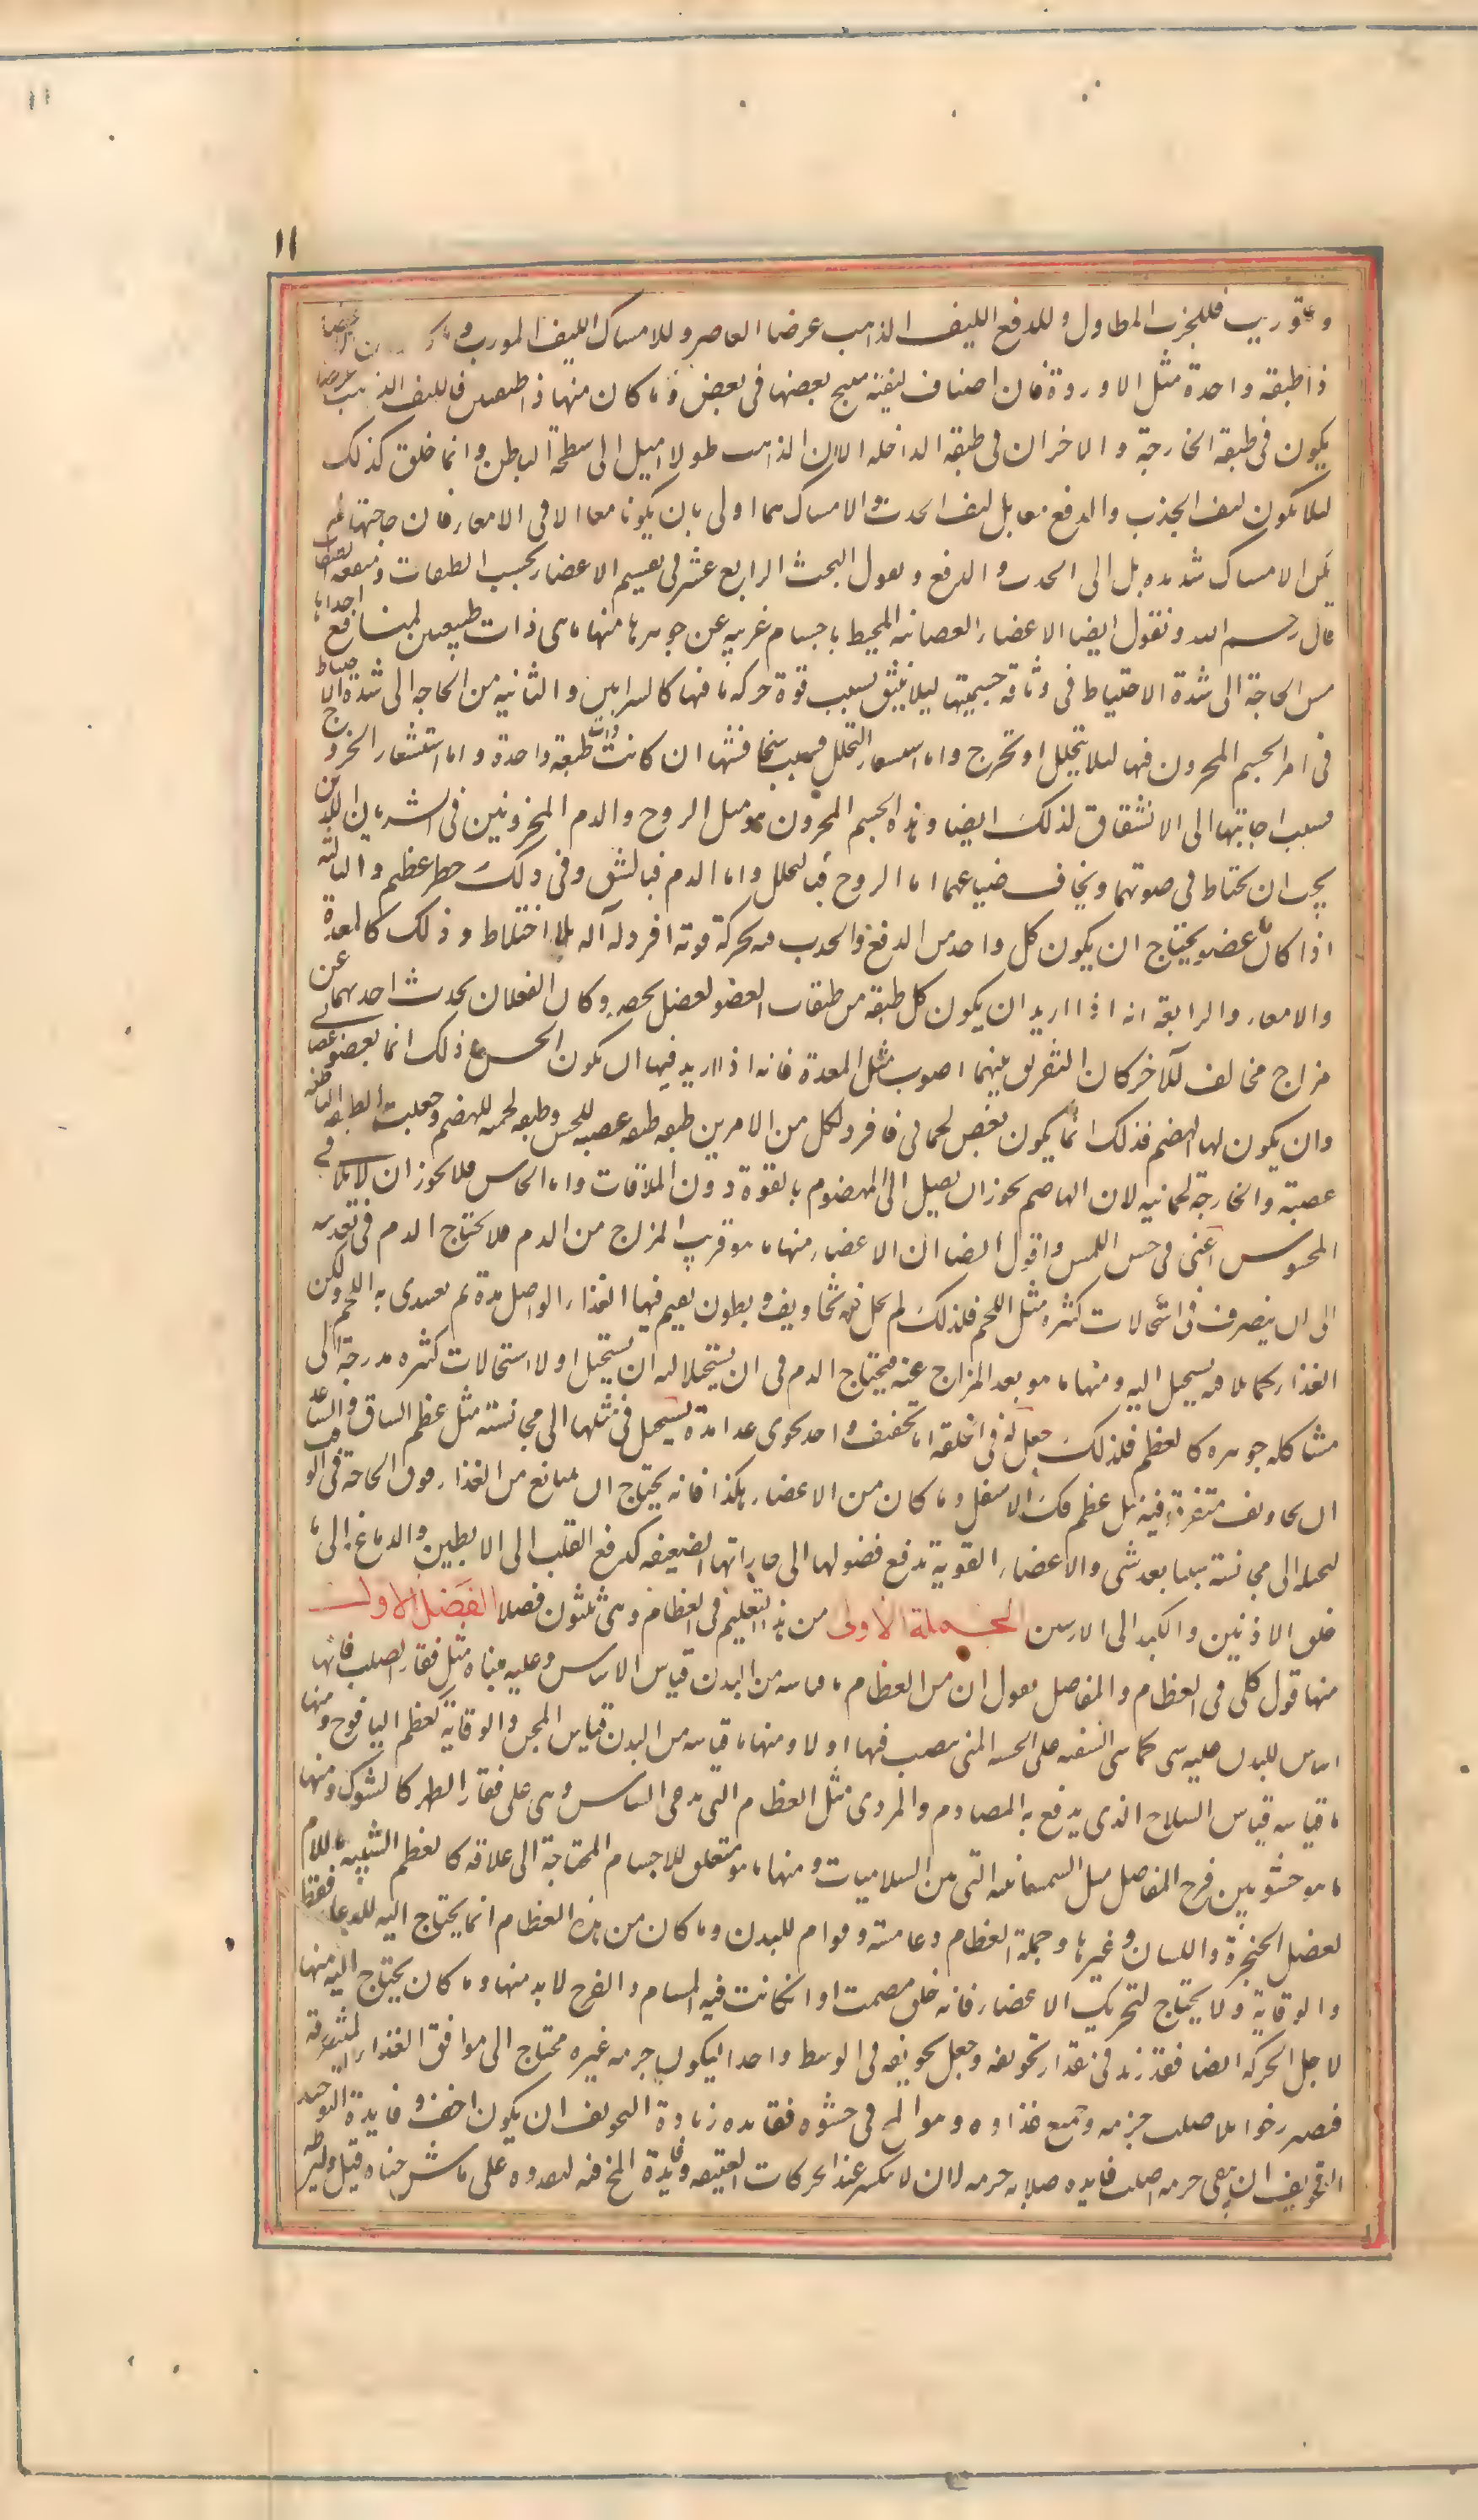 ١١
١١
و عقوريب فللجذب المطاول وللدفع الليف الذاهب عرضا العاصر وللامساك الليف المورب وما كان من الاعضا
ذا طبقه واحدة مثل الاوردة فان اصناف ليفه ينسج بعضها فى بعض وما كان منها ذا طبقتين فالليف الذاهب عرضا
يكون فى طبقته الخارجة والاخران فى طبقه الداخله الا ان الذاهب طولا اميل الى سطحه الباطن وانما خلق كذلك
ليلا يكون ليف الجذب والدفع معا بل ليف الجذب والامساك هما اولى بان يكونا معا الا فى الامعاء فان حاجتها لم
يكن الى الامساك شديده بل الى الجذب والدفع ونقول البحث الرابع عشر فى تقسيم الاعضاء بحسب الطبقات ومنفعه
قال رحمه الله ونقول ايضا الاعضاء العصبانيه المحيط باجسام غريبه عن جوهرها منها ما هى ذات طبقتين لمنافع احدها
مس الحاجة الى شدة الاحتياط فى وثاقه جسميتها ليلا ينشق بسبب قوة حركه ما فيها كالشرايين والثانيه من الحاجه الى شدة الاحتياط
فى امر الجسم المخزون فيها ليلا يتحلل او يخرج واما استشعار التحلل فبسبب سخافتها ان كانت ذات طبقة واحدة واما استشعار الخروج
فبسب اجابتها الى الانشقاق لذلك ايضا وهذا الجسم المخزون هو مثل الروح والدم المخزونين فى الشريانين اللذين
يجب ان يحتاط فى صونهما ويخاف ضياعهما اما الروح فبالتحلل واما الدم فبالشق وفى ذلك خطر عظيم والثالثه
اذا كان عضو يحتاج ان يكون كل واحد من الدفع والجذب فيه بحركة قويه افرد له آله بلا اختلاط وذلك كالمعدة
والامعاء والرابعه انه اذا اريد ان يكون كل طبقه من طبقات العضو لفعل يخصه وكان الفعلان يحدث احدهما عن
مزاج مخالف للآخر كان التفريق بينهما اصوب مثل المعدة فانه اذا اريد فيها ان يكون الحس و ذلك انما بعضو عصبا
وان يكون لها الهضم فذلك انما يكون بعض لحمانى فافرد لكل من الامرين طبقه طبقه عصبيه للحس وطبقه لحميه للهضم وجعلت الطبقه الباطنه
عصبية والخارجة لحمانيه لان الهاضم يجوز ان يصل الى المهضوم بالقوة دون الملاقات واما الحاس فلا يجوز ان لا يلاقى
المحسوس اعنى فى حس اللمس واقول ايضا ان الاعضاء منها ما هو قريب المزاج من الدم فلا يحتاج الدم فى تغديته
الى ان ينصرف فى استحالات كثيره مثل اللحم فلذلك لم يجعل فيه تجاويف وبطون يقيم فيها الغذاء الواصل مدة ثم يغتدى به اللحم ولكن
الغذاء كما يلاقيه يستحيل اليه ومنها ما هو بعيد المزاج عنه فيحتاج الدم فى ان يستحيل اليه ان يستحيل اولا استحالات كثيره مدرجة الى
مشاكله جوهره كالعظم فلذلك جعل له فى الخلقه اما تجويف واحد يحوى غداه مدة يستحيل فى مثلها الى مجانسته مثل عظم الساق والساعد
او تجاويف متفرقة فيه مثل عظم فك الاسفل وما كان من الاعضاء هكذا فانه يحتاج ان يمانع من الغذاء فوق الحاجة فى الوقت
ليحيله الى مجانسته شيا بعد شى والاعضاء القوية تدفع فضولها الى جاراتها الضعيفه كدفع القلب الى الابطين والدماغ الى ما
خلف الاذنين والكبد الى الاربيتين الجملة الاولى من هذا التعليم فى العظام وهى ثلثون فصلا الفصل الاول
منها قول كلى فى العظام والمفاصل نقول ان من العظام ما قياسه من البدن قياس الاساس وعليه مبناه مثل فقار الصلب فانها
اساس للبدن عليه يبنى كما تبنى السفينه على الخشبه التى تنصب فيها اولا ومنها ما قياسه من البدن قياس المجن والوقاية كعظم اليافوخ ومنها
ما قياسه قياس السلاح الذى يدفع به المصادم والمردى مثل العظام التى تدعى السناسن وهى على فقار الظهر كالشوك ومنها
ما هو حشو بين فرج المفاصل مثل السمسمانيه التى من السلاميات ومنها ما هو متعلق للاجسام المحتاجة الى علاقه كالعظم الشبيه باللام
لعضل الحنجرة واللسان وغيرها وجملة العظام دعامته وقوام للبدن وما كان من هذه العظام انما يحتاج اليه للدعامه فقط
والوقاية ولا يحتاج لتحريك الاعضاء فانه خلق مصمتا وان كانت فيه المسام والفرج لا بد منها وما كان يحتاج اليه منها
لاجل الحركه ايضا فقد زيد فى مقدار تجويفه وجعل تجويفه فى الوسط واحدا ليكون جرمه غيره محتاج الى مواقف الغذاء المتفرقه
فتصير رخوا بل صلب جرمه وجمع غذاوه وهو المخ فى حشوه ففايده زيادة التجويف ان يكون اخف وفايدة التوحيد
التجويف ان يبقى جرمه اصلب فايده صلابه جرمه ان لا ينكسر عند الحركات العنيفه وفايدة المخ فيه ليغدوه على ما شرحناه قبل وليرطبه